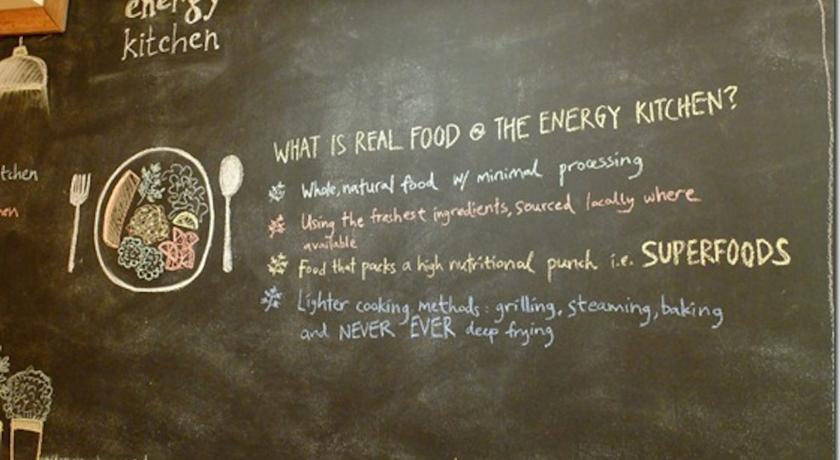 energy
kitchen
WHAT IS REAL FOOD @ THE ENERGY KITCHEN?
Whole, natural food w/ minimal processing
Using the freshest ingredients, sourced locally where
available
Food that packs a high nutritional punch i.e. SUPERFOODS
Lighter cooking methods: grilling, steaming, baking
and NEVER EVER deep frying